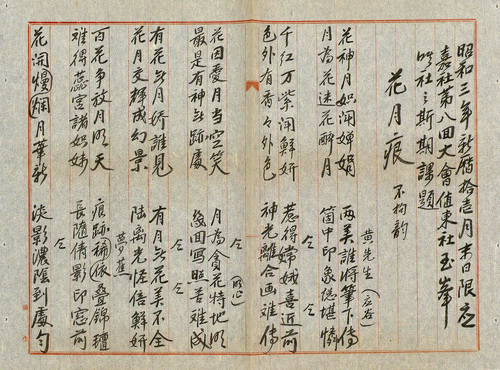 昭和三年新曆拾壹月末日限
嘉社第八回大會值東社玉峯
吟社之斯期課題
花月痕 不拘韵
黃先生
花神月姊鬪嬋娟 兩美誰將筆下傳
月為花迷花醉月 箇中印象總堪憐
仝
千紅万紫鬪鮮妍 惹得嫦娥喜近前
色外有香々外色 神光離合画難傳
仝
花因愛月當空笑 月為貪花特地明
最是有神無跡處 幾回寫照苦難成
仝
有花無月嬌誰見 有月無花美不全
花月交輝成幻景 陸離光怪倍鮮妍
夢蕉
百花爭放月明天 痕跡稀依疊錦氈
誰得蕊宮諸姊妹 長隨倩影印窓前
仝
花開熳爛月華新 淡影濃陰到處勻